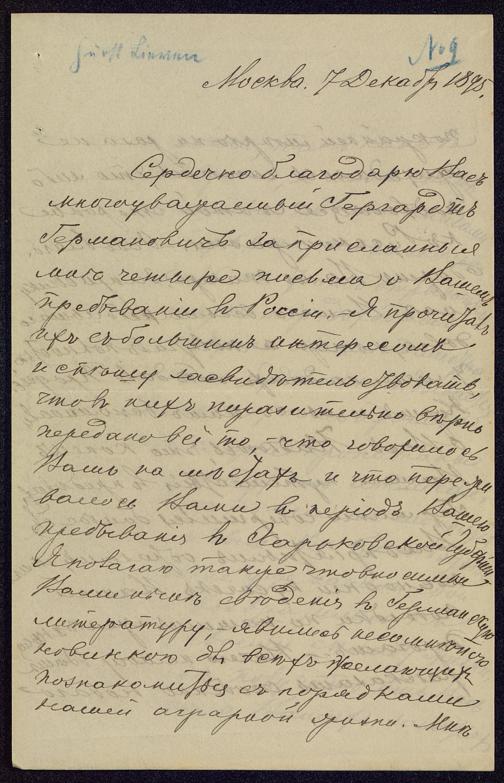 Fürst Liewen
№ 9
Москва. 7 Декабр 1895.
Сердечно благодарю Васъ
многоуважаемый Гергардтъ
Германовичъ за присланныя
мнѣ четыре письма о Вашемъ
пребываніи въ Россіи. - Я прочиталъ
ихъ съ большимъ интересомъ
и спѣшу засвидѣтельствовать,
что въ нихъ поразительно вѣрно
передано всё то, - что говорилось
Вамъ на мѣстахъ и что пережи
валось Вами въ періодъ Вашего
пребыванія въ Харьковской Губерніи
Я полагаю также что вносимыя
Вами ныне свѣденія въ Германскую
литературу, - явились несомнѣнною
новинкою для всѣхъ желающихъ
познакомиться съ порядками
нашей аграрной жизни. Мнѣ